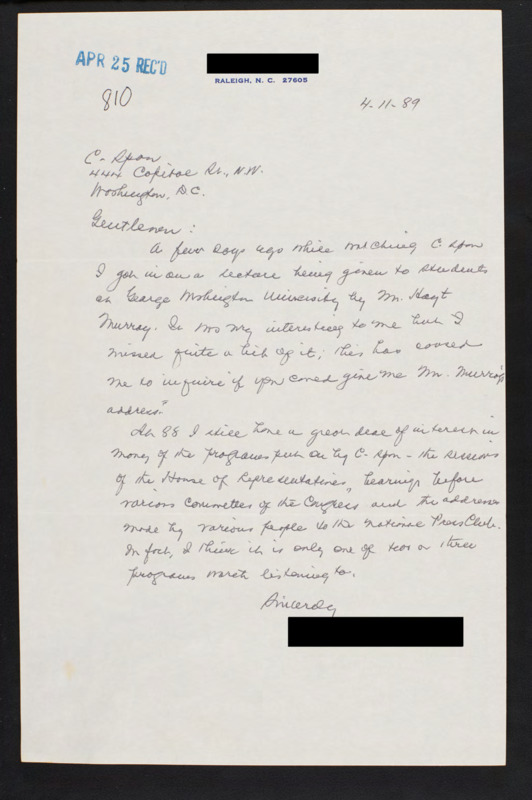 APR 25 REC'D
RALEIGH, N. C. 27605
810
4-11-89
C-Span
444 Capitol St., N.W.
Washington, D.C.
Gentlemen:
A few days ago while watching C. Span
I got in on a lecture being given to students
at George Washington University by Mr. Hoyt
Murray. It was very interesting to me but I
missed quite a bit of it; this has caused
me to inquire if you could give me Mr. Murray's
address.
At 88 I still have a great deal of interest in
many of the programs put on by C-Span - the sessions
of the House of Representatives, hearings before
various committees of the Congress and the addresses
made by various people to the National Press Club.
In fact, I think it is only one of two or three
programs worth listening to.
Sincerely